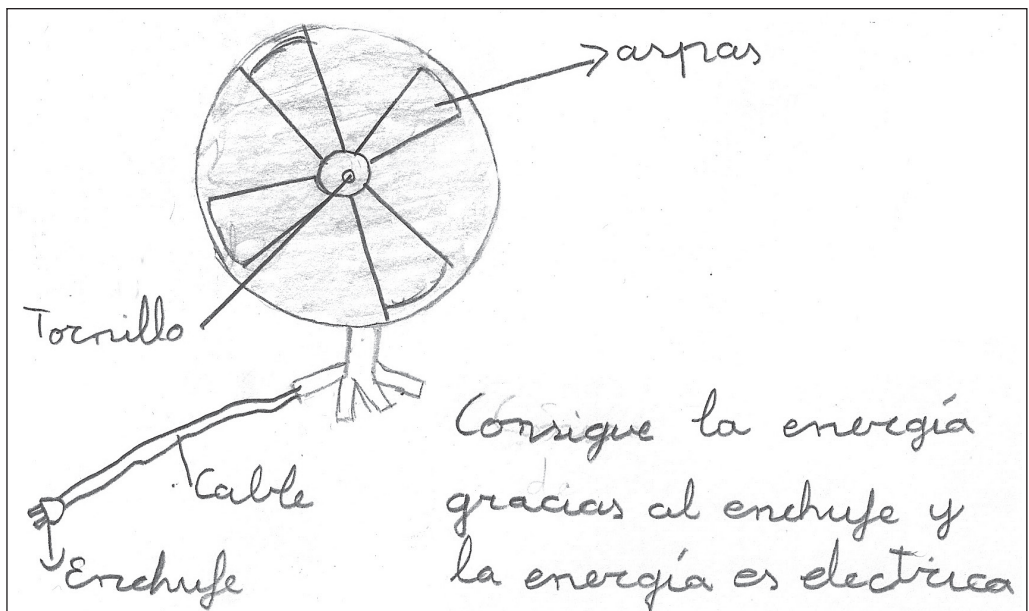 aspas
Tornillo
Cable
Enchufe
Consigue la energía
gracias al enchufe y
la energía es electrica